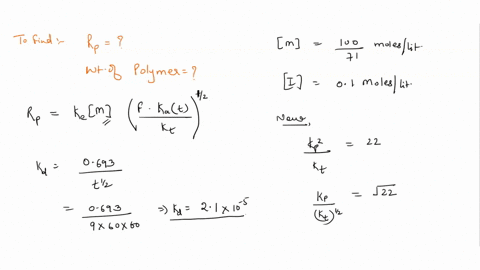 To find:- Rp = ?
wt. of Polymer = ?
Rp = ke[m] (f · Ka(t) / Kt)^1/2
Kd = 0.693 / t 1/2
= 0.693 / 9 × 60 × 60 ⇒ Kd = 2.1 × 10^-5
[m] = 100 / 71 moles/lit
[I] = 0.1 moles/lit
Now,
kp^2 / Kt = 22
Kp / (Kt)^1/2 = √22